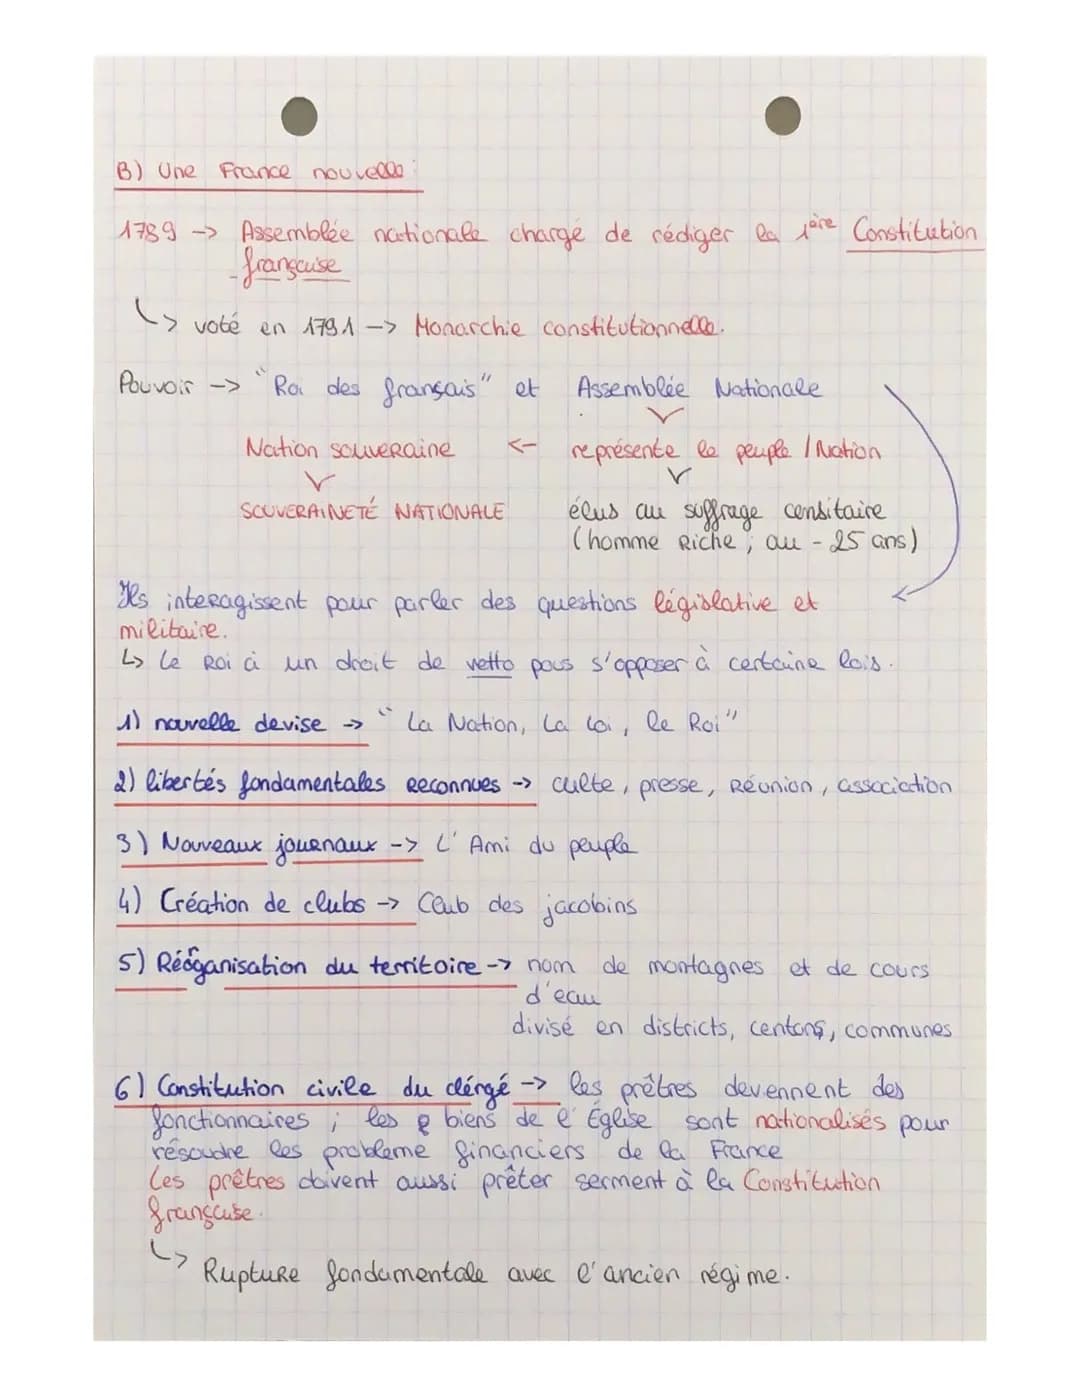 B) Une France nouvelle :
1789 -> Assemblée nationale chargé de rédiger la 1ère Constitution
française
↳ voté en 1791 -> Monarchie constitutionnelle.
Pouvoir -> "Roi des français" et Assemblée Nationale
Nation souveraine <- représente le peuple / Nation
SOUVERAINETÉ NATIONALE élus au suffrage censitaire
(homme Riche ; au - 25 ans)
Ils interagissent pour parler des questions législative et
militaire.
↳ Le Roi à un droit de vetto pous s'opposer à certaine lois.
1) nouvelle devise -> "La Nation, La Loi, le Roi"
2) libertés fondamentales Reconnues -> culte, presse, Réunion, association
3) Nouveaux journaux -> L'Ami du peuple
4) Création de clubs -> Club des jacobins
5) Réorganisation du territoire -> nom de montagnes et de cours
d'eau
divisé en districts, centons, communes
6) Constitution civile du clérgé -> les prêtres devennent des
fonctionnaires ; les biens de l'Église sont nationalisés pour
résoudre les probleme financiers de la France
Les prêtres doivent aussi prêter serment à la Constitution
française.
↳ Rupture fondamentale avec l'ancien régime.